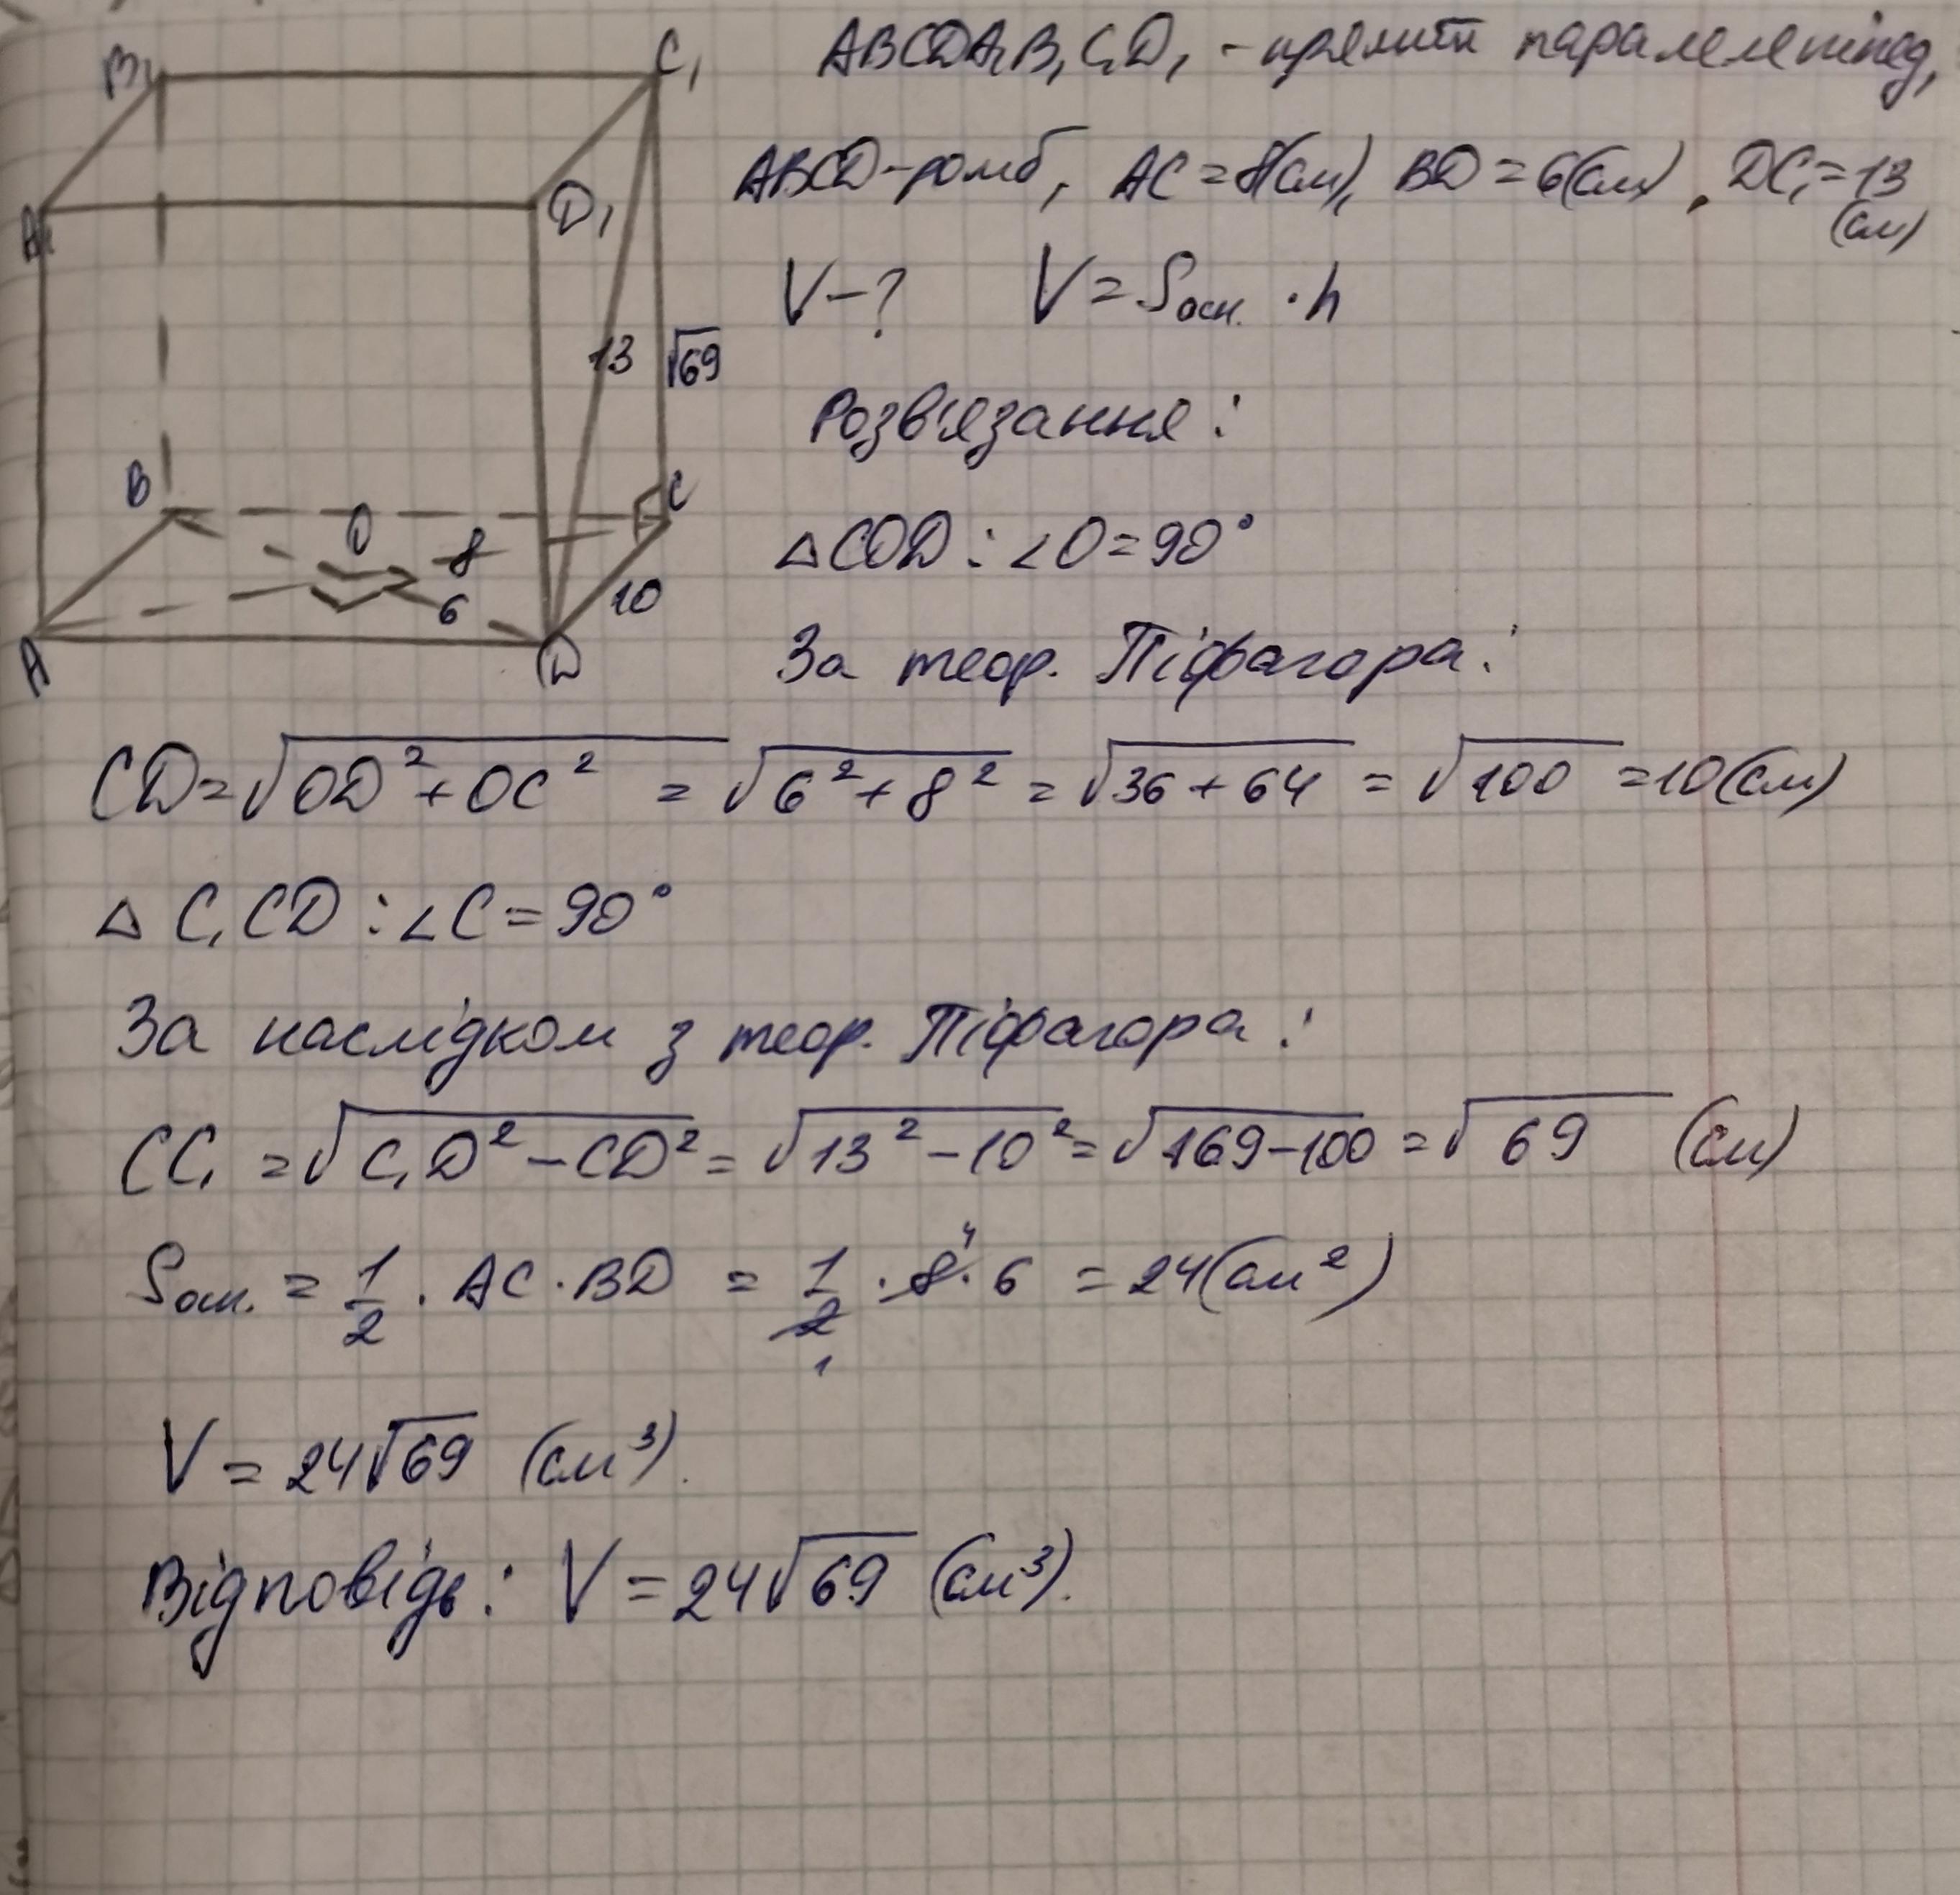 ABCDA₁B₁C₁D₁ - прямий паралелепіпед,
ABCD-ромб, AC=8(см), BD=6(см), DC₁=13
(см)
V-? V=Sосн. · h
Розв'язання:
△COD: ∠O=90°
За теор. Піфагора:
B₁
C₁
A₁
D₁
13
√69
B
C
O
8
6
10
A
D
CD=√OD²+OC² = √6²+8² = √36+64 = √100 =10(см)
△ C₁CD: ∠C=90°
За наслідком з теор. Піфагора:
CC₁ =√C₁D²-CD² = √13²-10² = √169-100 = √69 (см)
Sосн. = 1/2 · AC · BD = 1/2 · 8 · 6 = 24(см²)
4
1
V = 24√69 (см³).
Відповідь: V = 24√69 (см³).